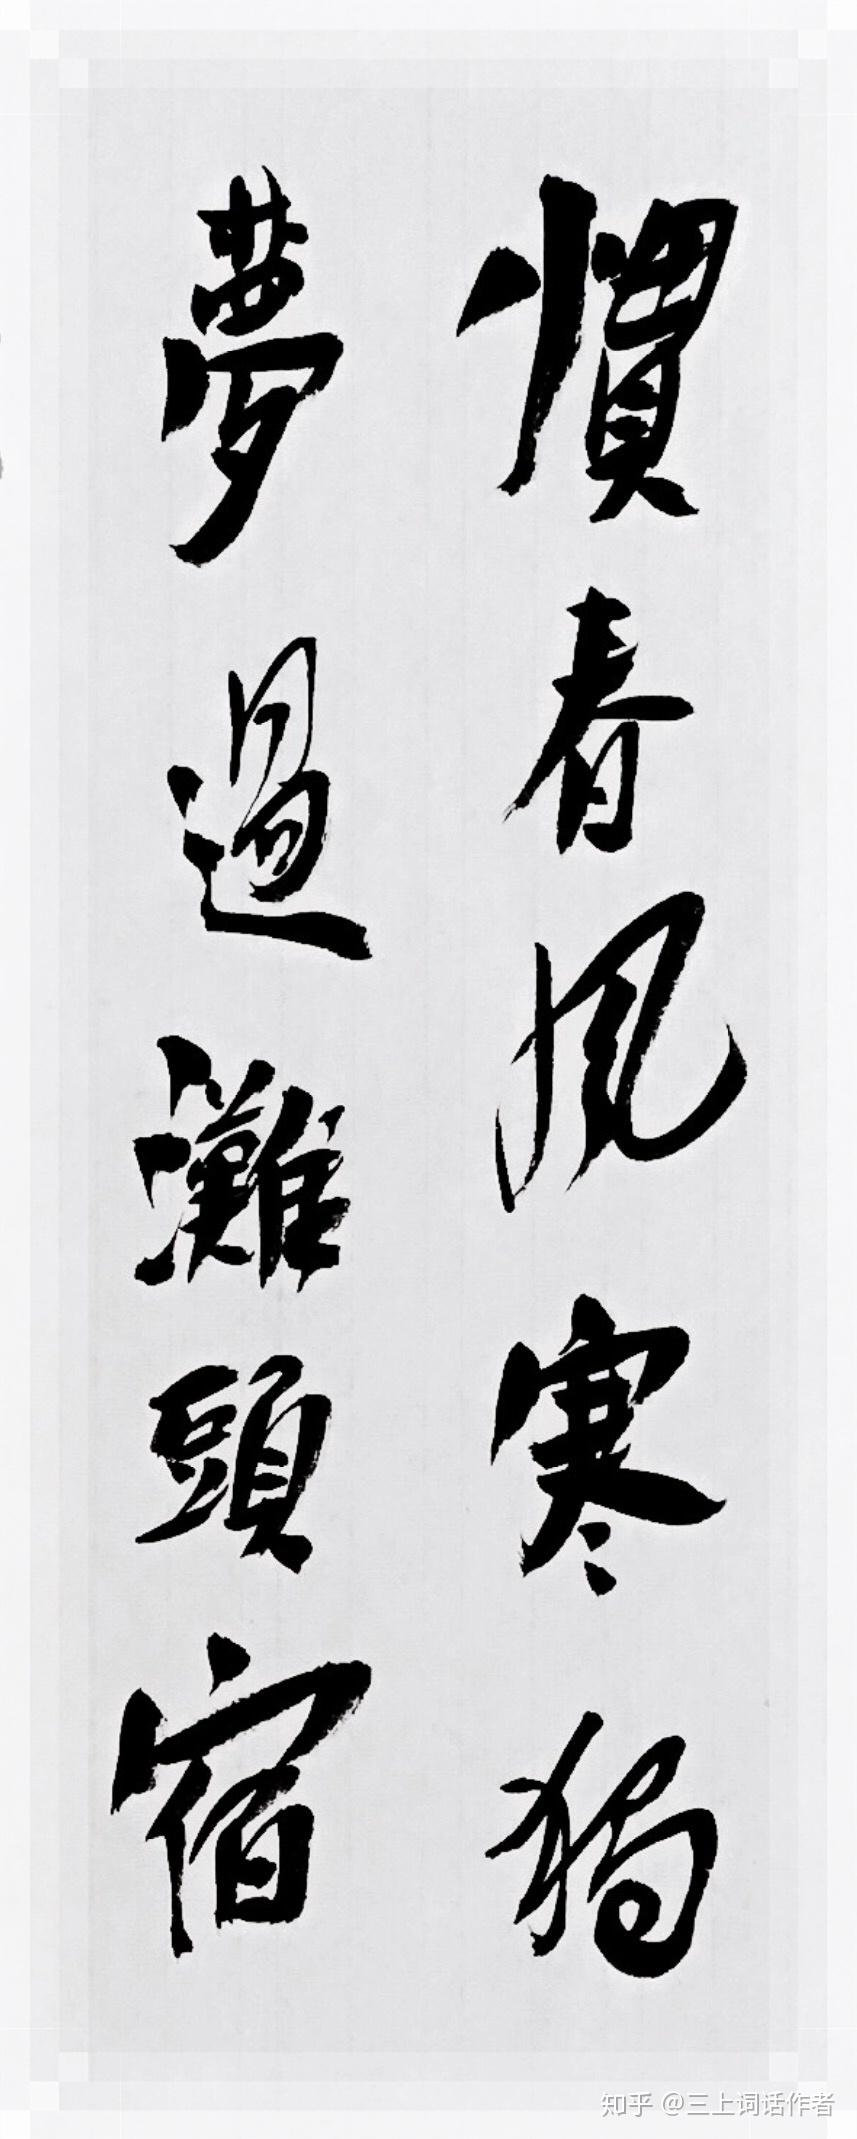 慣春風寒獨
夢過灘頭宿
知乎 @三上词话作者